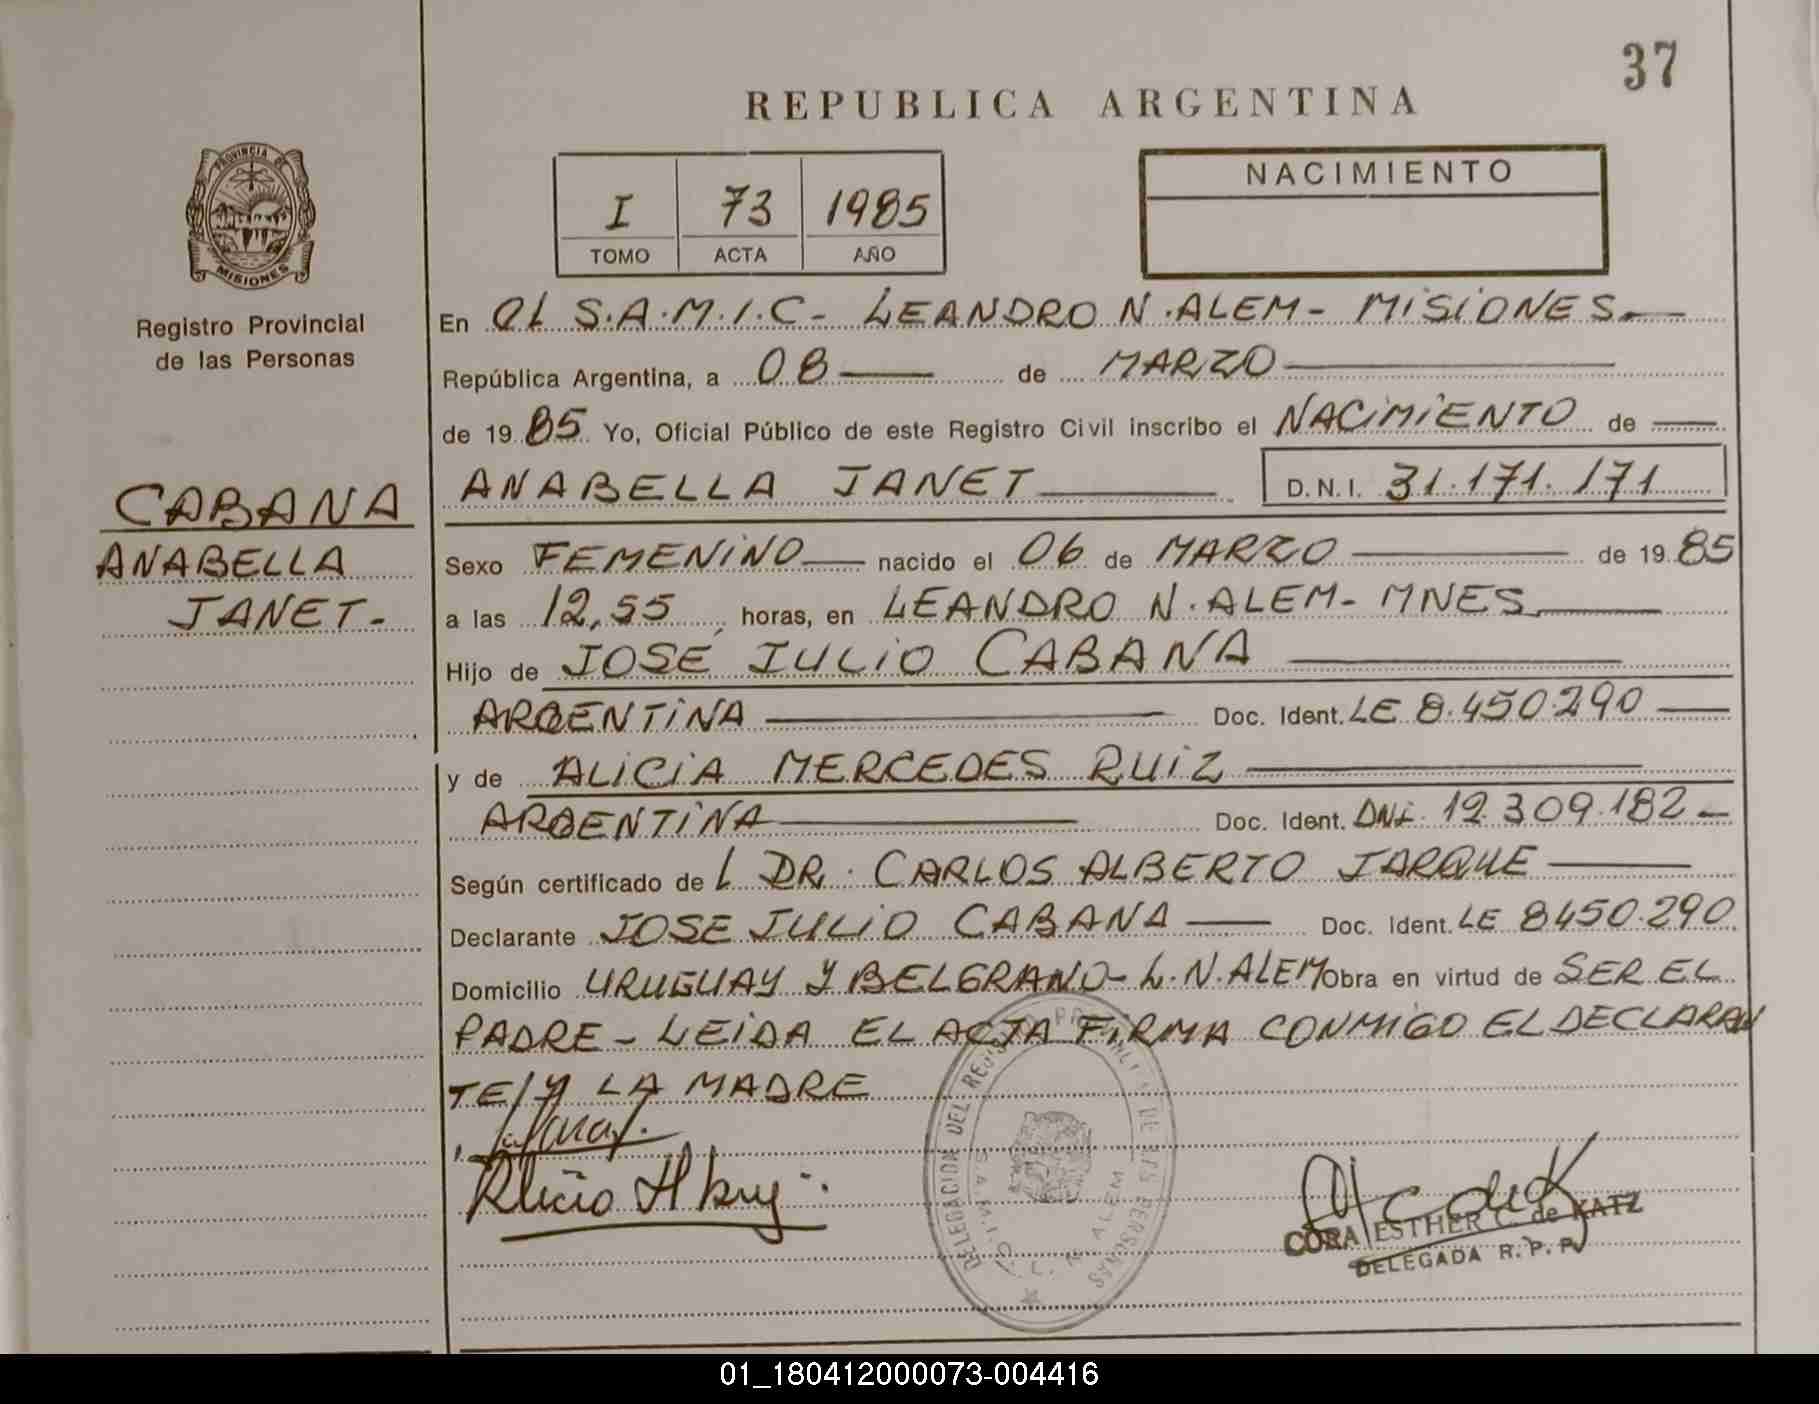 37
REPUBLICA ARGENTINA
PROVINCIA DE
MISIONES
Registro Provincial
de las Personas
I 73 1985
TOMO ACTA AÑO
NACIMIENTO
En el S.A.M.I.C- LEANDRO N.ALEM- MISIONES.
República Argentina, a 08 de MARZO
de 1985 Yo, Oficial Público de este Registro Civil inscribo el NACIMIENTO de
ANABELLA JANET D.N.I. 31.171.171
CABANA
ANABELLA
JANET-
Sexo FEMENINO nacido el 06 de MARZO de 1985
a las 12,55, horas, en LEANDRO N.ALEM- MNES.
Hijo de JOSE JULIO CABANA
ARGENTINA Doc. Ident. LE 8.450.290
y de ALICIA MERCEDES RUIZ
ARGENTINA Doc. Ident. DNI. 12.309.182-
Según certificado del DR. CARLOS ALBERTO JARQUE
Declarante JOSE JULIO CABANA Doc. Ident. LE 8450.290
Domicilio URUGUAY Y BELGRANO- L.N.ALEM Obra en virtud de SER EL
PADRE- LEIDA EL ACTA FIRMA CONMIGO EL DECLARAN
TE/Y LA MADRE
DELEGACION DEL REGISTRO PROVINCIAL DE LAS PERSONAS
S.A.M.I.C. L. N. ALEM
CORA ESTHER C. de KATZ
DELEGADA R. P. P.
01_180412000073-004416